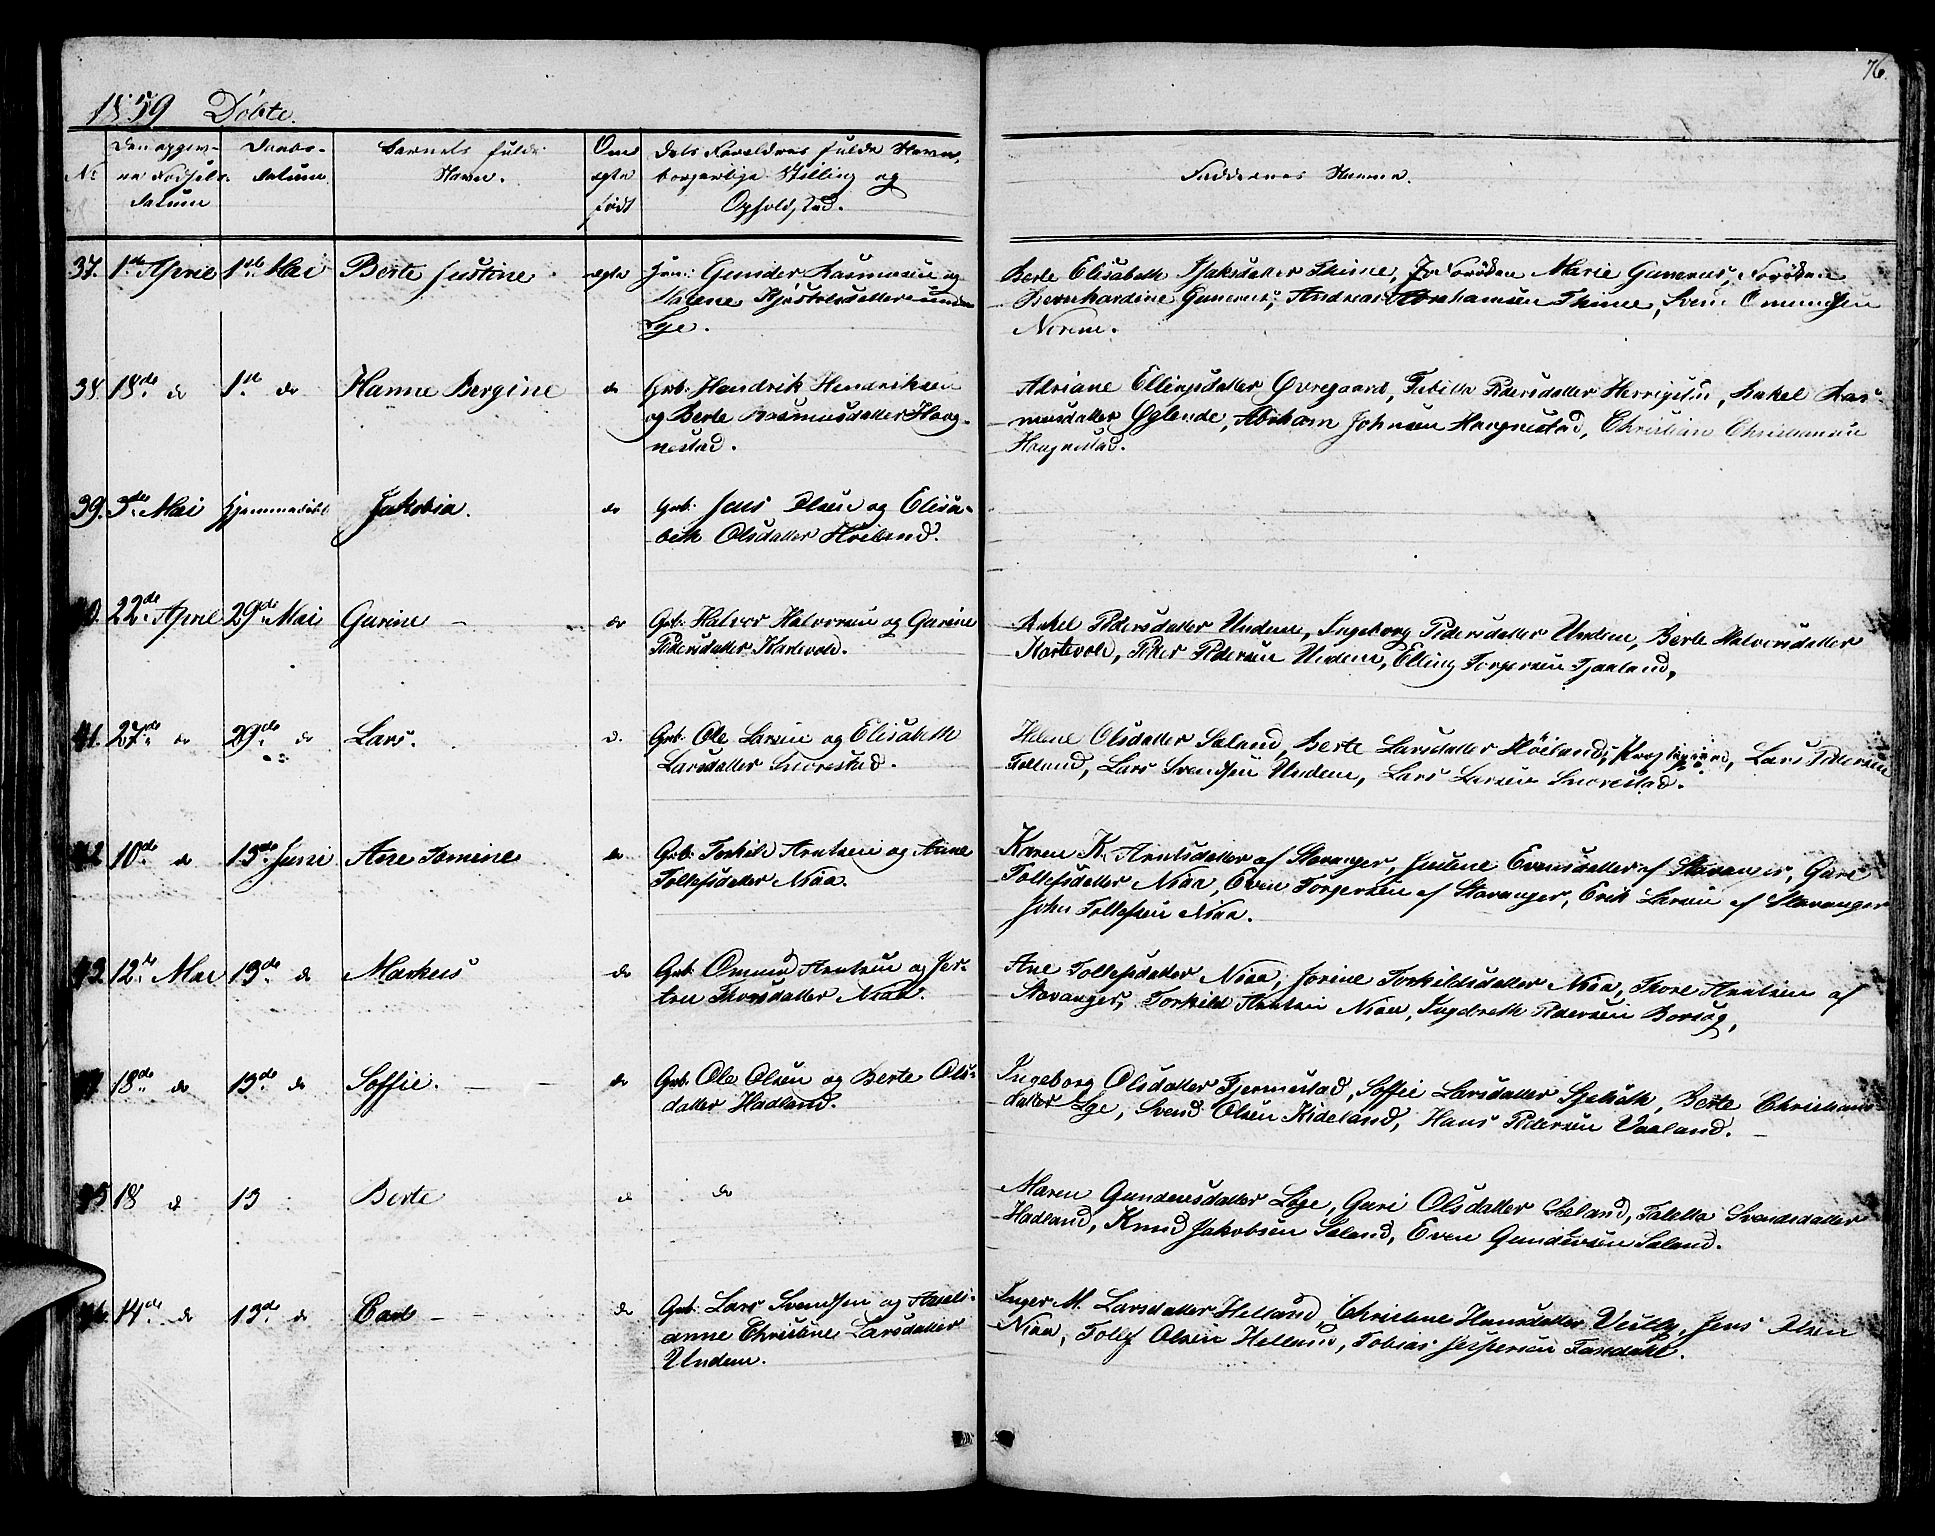 76.
1859 Döbte.
No
Den opgiv-
ne Fødsels-
datum
Daabs-
datum.
Barnets fulde
Navn.
Om
ægte
født
Dets Forældres fulde Navn,
borgerlige Stilling og
Opholdsted.
Faddernes Navne.
37. 1ste April 1ste Mai Berte Justine ægte Inv: Gunder Rasmusen og
Malene Kjöstolsdatter
Lye.
Berte Elisabeth Thime, Frøken Marie Gunerus, Frøken
Bernhardine Gunerus, Andreas Abrahamsen Thime, Sven Omundsen
Norem.
38. 18de do 1ste do Hanne Bergine do Grb: Hendrik Hendriksen
og Berte Rasmusdatter Haag-
nestad.
Adriane Ellingsdatter Övregaard, Tabitta Pedersdatter Herrigstad, Rakel Ras-
musdatter Öglende, Abraham Johnsen Haagnestad, Christian Christiansen
Haagnestad.
39. 3die Mai Hjemmedöbt Jakobia. do Grb: Jens Olsen og Elisa-
beth Olsdatter Höiland.
40. 22de April 29de Mai Gurine - do Grb: Halvor Halvorsen og Gurine
Pedersdatter Kartevold.
Rakel Pedersdatter Undem, Ingeborg Pedersdatter Undem, Berte Halvorsdatter
Kartevold, Peder Pedersen Undem, Elling Torgersen Tjaaland,
41. 27de do 29de do Lars. d. Grb: Ole Larsen og Elisabeth
Larsdatter Snorestad.
Helene Olsdatter Saland, Berte Larsdatter Höiland, Lars Pedersen
Folland, Lars Svendsen Undem, Lars Larsen Snorestad.
42 10de do 13de Juni Ane Tomine do Grb: Torkild Arntsen og Anne
Tollefsdatter Niaa.
Karen K. Arntsdatter af Stavanger, Juline Evensdatter af Stavanger, Guri
Tollefsdatter Niaa, Even Torgersen af Stavanger, Erik Larsen af Stavanger
John Tollefsen Niaa.
43. 12te Mai 13de do Markus do Grb: Omund Arntsen og Jer-
tru Thorsdatter Niaa.
Ane Tollefsdatter Niaa, Jorine Torkildsdatter Niaa, Thore Arntsen af
Stavanger, Torkild Arntsen Niaa, Ingebreth Pedersen Borsøg,
44 18de do 13de do Soffie. - do Grb. Ole Olsen og Berte Ols-
datter Hadland.
Ingeborg Olsdatter Tjermestad, Soffie Larsdatter Sjelvik, Berte Christians-
datter Lye, Svend Olsen Kideland, Hans Pedersen Vaaland. -
45 18 do 13 Berte d do
Maren Gundersdatter Lye, Guri Olsdatter Saland, Taletta Svendsdatter
Hadland, Knud Jakobsen Saland, Even Gundersen Saland.
46. 14de do 13de do Carl - do Grb: Lars Svendsen og Axeli-
anne Christine Larsdatter
Undem.
Inger M. Larsdatter Helland, Christine Hansdatter Vestly, Jens Olsen
Niaa, Tollef Olsen Helland, Tobias Jespersen Taxdahl.